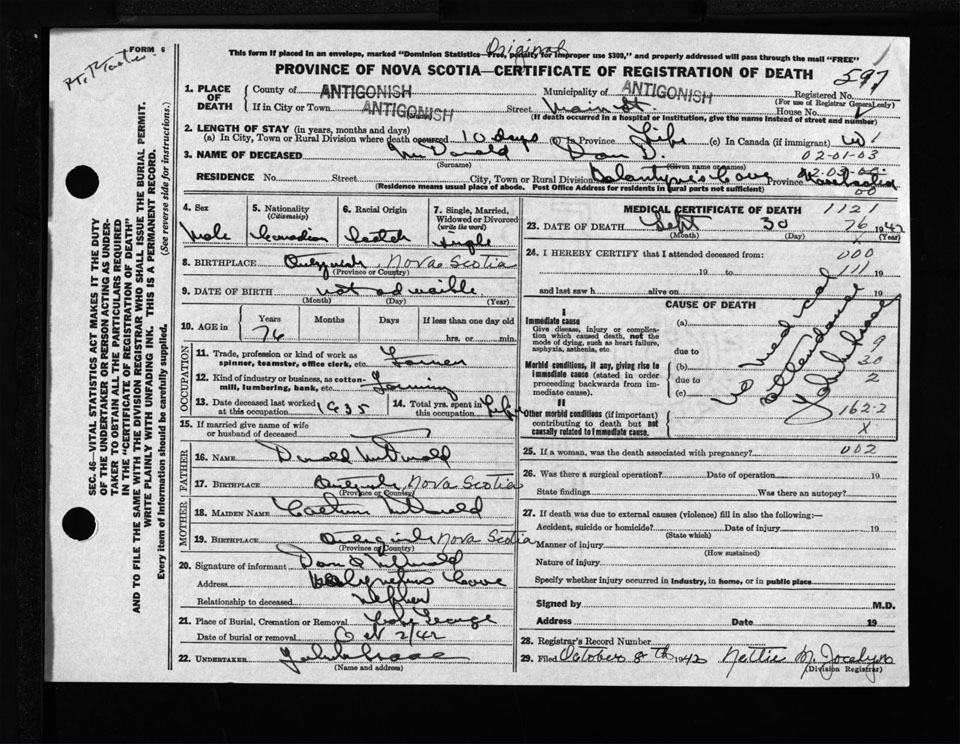 FORM 6
Original
This form if placed in an envelope, marked "Dominion Statistics—Free, penalty for improper use $300," and properly addressed will pass through the mail "FREE"
PROVINCE OF NOVA SCOTIA—CERTIFICATE OF REGISTRATION OF DEATH
597
1. PLACE OF DEATH
County of ANTIGONISH Municipality of ANTIGONISH Registered No.
(For use of Registrar General only)
If in City or Town ANTIGONISH Street Main St. House No.
(Name) (If death occurred in a hospital or institution, give the name instead of street and number)
2. LENGTH OF STAY (in years, months and days)
(a) In City, Town or Rural Division where death occurred 10 days (b) In Province Life (c) In Canada (if immigrant)
3. NAME OF DECEASED McDonald Dan D. 02-01-03
(Surname) (Given name or names)
RESIDENCE No. Street City, Town or Rural Division Ballantyne's Cove Province Nova Scotia
(Residence means usual place of abode. Post Office Address for residents in rural parts not sufficient) 00
SEC. 46—VITAL STATISTICS ACT MAKES IT THE DUTY
OF THE UNDERTAKER OR PERSON ACTING AS UNDER-
TAKER TO OBTAIN ALL THE PARTICULARS REQUIRED
IN THE "CERTIFICATE OF REGISTRATION OF DEATH"
AND TO FILE THE SAME WITH THE DIVISION REGISTRAR WHO SHALL ISSUE THE BURIAL PERMIT.
WRITE PLAINLY WITH UNFADING INK. THIS IS A PERMANENT RECORD.
Every item of Information should be carefully supplied. (See reverse side for instructions.)
4. Sex
Male
5. Nationality
(Citizenship)
Canadian
6. Racial Origin
Scotch
7. Single, Married, Widowed or Divorced
(write the word)
Single
8. BIRTHPLACE Antigonish, Nova Scotia
(Province or Country)
9. DATE OF BIRTH not advaible
(Month) (Day) (Year)
10. AGE in Years Months Days If less than one day old
76 hrs. or min.
OCCUPATION
11. Trade, profession or kind of work as spinner, teamster, office clerk, etc. Farmer
12. Kind of industry or business, as cotton-mill, lumbering, bank, etc. Farming
13. Date deceased last worked at this occupation 1935
14. Total yrs. spent in this occupation Life
15. If married give name of wife or husband of deceased
FATHER
16. NAME Donald McDonald
17. BIRTHPLACE Antigonish, Nova Scotia
(Province or Country)
MOTHER
18. MAIDEN NAME McDonald
19. BIRTHPLACE Antigonish Nova Scotia
(Province or Country)
20. Signature of informant Dan McDonald
Address Cove
Relationship to deceased Nephew
21. Place of Burial, Cremation or Removal George
Date of burial or removal Oct 2/42
22. UNDERTAKER
(Name and address)
MEDICAL CERTIFICATE OF DEATH 1121
23. DATE OF DEATH Sept 30 76 1942
(Month) (Day) (Year)
24. I HEREBY CERTIFY that I attended deceased from: 000
19 to 111 19
and last saw h alive on 19
CAUSE OF DEATH
I
Immediate cause
Give disease, injury or complication which caused death, not the mode of dying, such as heart failure, asphyxia, asthenia, etc.
(a)
due to
Morbid conditions, if any, giving rise to immediate cause (stated in order proceeding backwards from immediate cause).
(b)
due to
(c)
II
Other morbid conditions (if important) contributing to death but not causally related to immediate cause.
No medical
attendance
9
20
2
162-2
X
25. If a woman, was the death associated with pregnancy? 002
26. Was there a surgical operation? Date of operation 19
State findings Was there an autopsy?
27. If death was due to external causes (violence) fill in also the following:—
Accident, suicide or homicide? Date of injury 19
(State which)
Manner of injury
(How sustained)
Nature of injury
Specify whether injury occurred in industry, in home, or in public place
Signed by M.D.
Address Date 19
28. Registrar's Record Number
29. Filed October 8th 1942 Nettie M. Jocelyn
(Division Registrar)